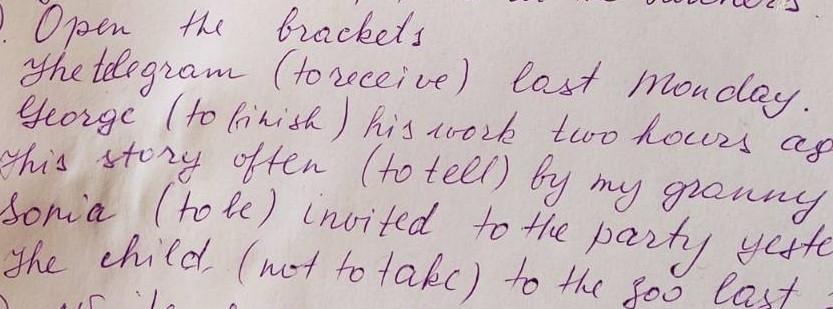 Open the brackets
The telegram (to receive) last Monday.
George (to finish) his work two hours ag
This story often (to tell) by my granny
Sonia (to be) invited to the party yeste
The child (not to take) to the zoo last